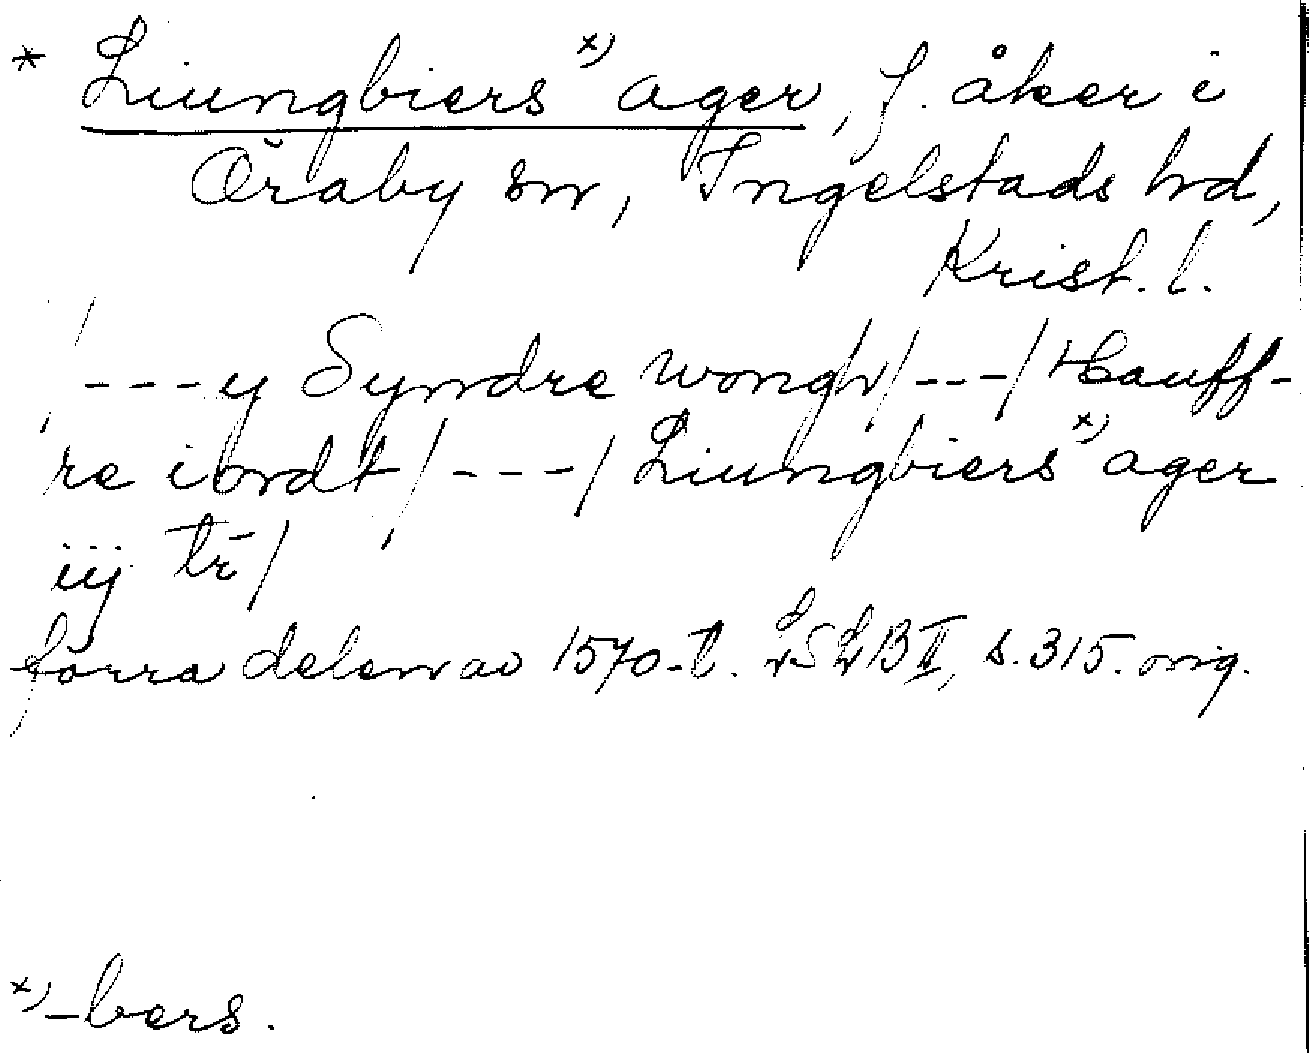 * Liungbiers x) ager, f. åker i
Öraby sn, Ingelstads hd,
Krist. l.
---y Syndre wongh/---/Hauff-
re iordt/---/Liungbiers x) ager
iij tr̄/
förra delen av 1570-t. LSLB II, s. 315. orig.
x) -bers.